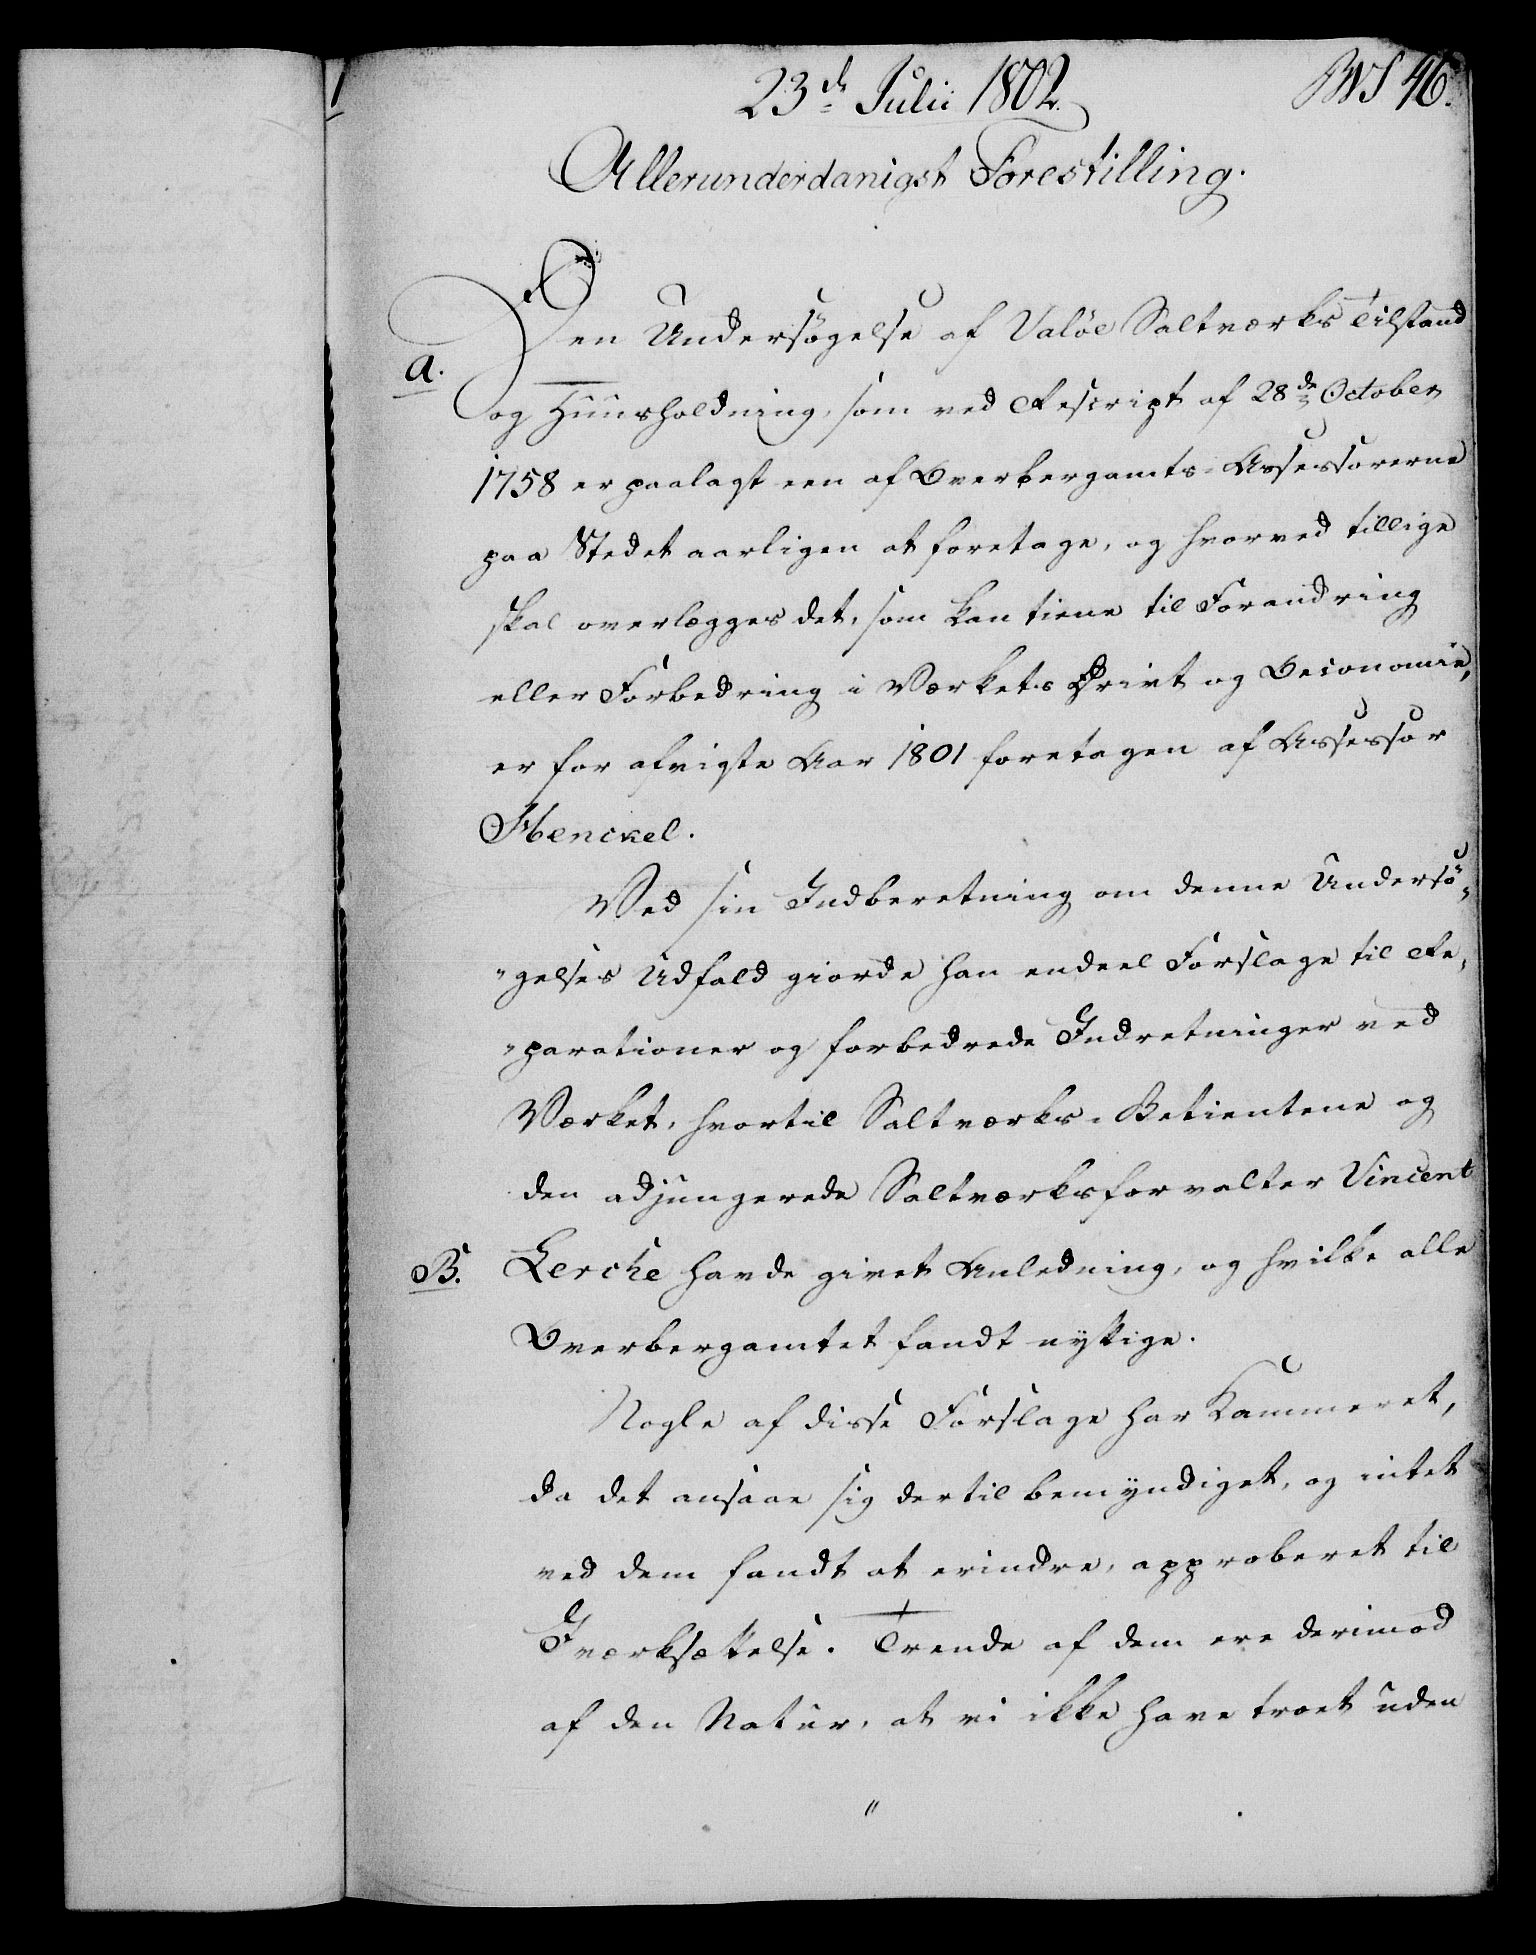 23de Julii 1802.
BVS 46.
Allerunderdanigst Forestilling.
a.
Den Undersögelse af Valöe Saltværks Tilstand
og Huusholdning, som ved Rescript af 28de October
1758 er paalagt een af Overbergamts-Assessorerne
paa Stedet aarligen at foretage, og hvorved tillige
skal overlægges det, som kan tiene til Forandring
eller Forbedring i Værkets Drivt og Oeconomie,
er for afvigte Aar 1801 foretagen af Assessor
Henckel.
Ved sin Indberetning om denne Undersö-
"gelses Udfald giorde han endeel Forslage til Re-
"parationer og forbedrede Indretninger ved
Værket, hvortil Saltværks-Betientene og
den adjungerede Saltværksforvalter Vincent
B.
Lerche havde givet Anledning, og hvilke alle
Overbergamtet fandt nyttige.
Nogle af disse Forslage har Kammeret,
da det ansaae sig dertil bemyndiget, og intet
ved dem fandt at erindre, approberet til
Iværksættelse. Trende af dem ere derimod
af den Natur, at vi ikke have troet uden
"